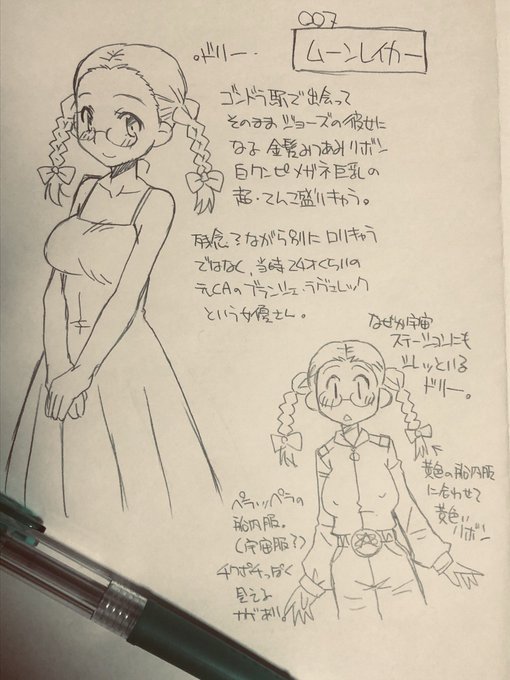 007
ムーンレイカー
ドリー…
ゴンドラ駅で出会って
そのままジョーズの彼女に
なる金髪みつあみリボン
白ワンピメガネ巨乳の
超・てんこ盛りキャラ。
残念ながら別にロリキャラ
ではなく、当時24才くらいの
元CAのブランシェ・ラヴァレック
という女優さん。
なぜか宇宙
ステーションにも
シレッといる
ドリー。
黄色の船内服
に合わせて
黄色いリボン
ペラッペラの
船内服。
(宇宙服?)
チクポチっぽく
見える